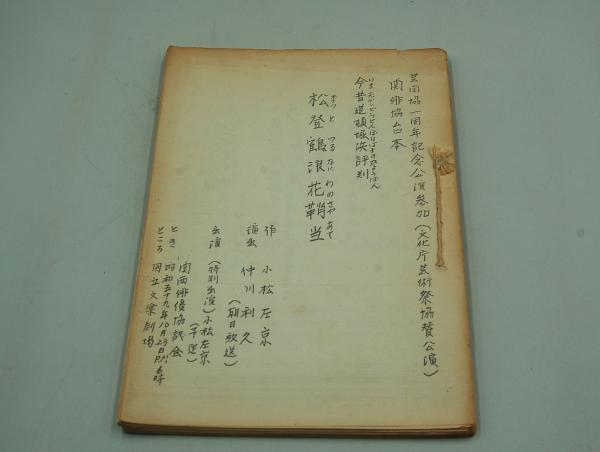 芸団協一周年記念公演参加(文化庁芸術祭協賛公演)
関俳協台本
いまむかしどうとんぼりばすのひょうばん
今昔道頓堀浜評判
まつ と つる なにわのさやあて
松登鶴浪花鞘当
作 小松左京
演出 仲川利久
(朝日放送)
出演(特別出演)小松左京
関西俳優協議会
とき 昭和五十九年10月23日
ところ 国立文楽劇場